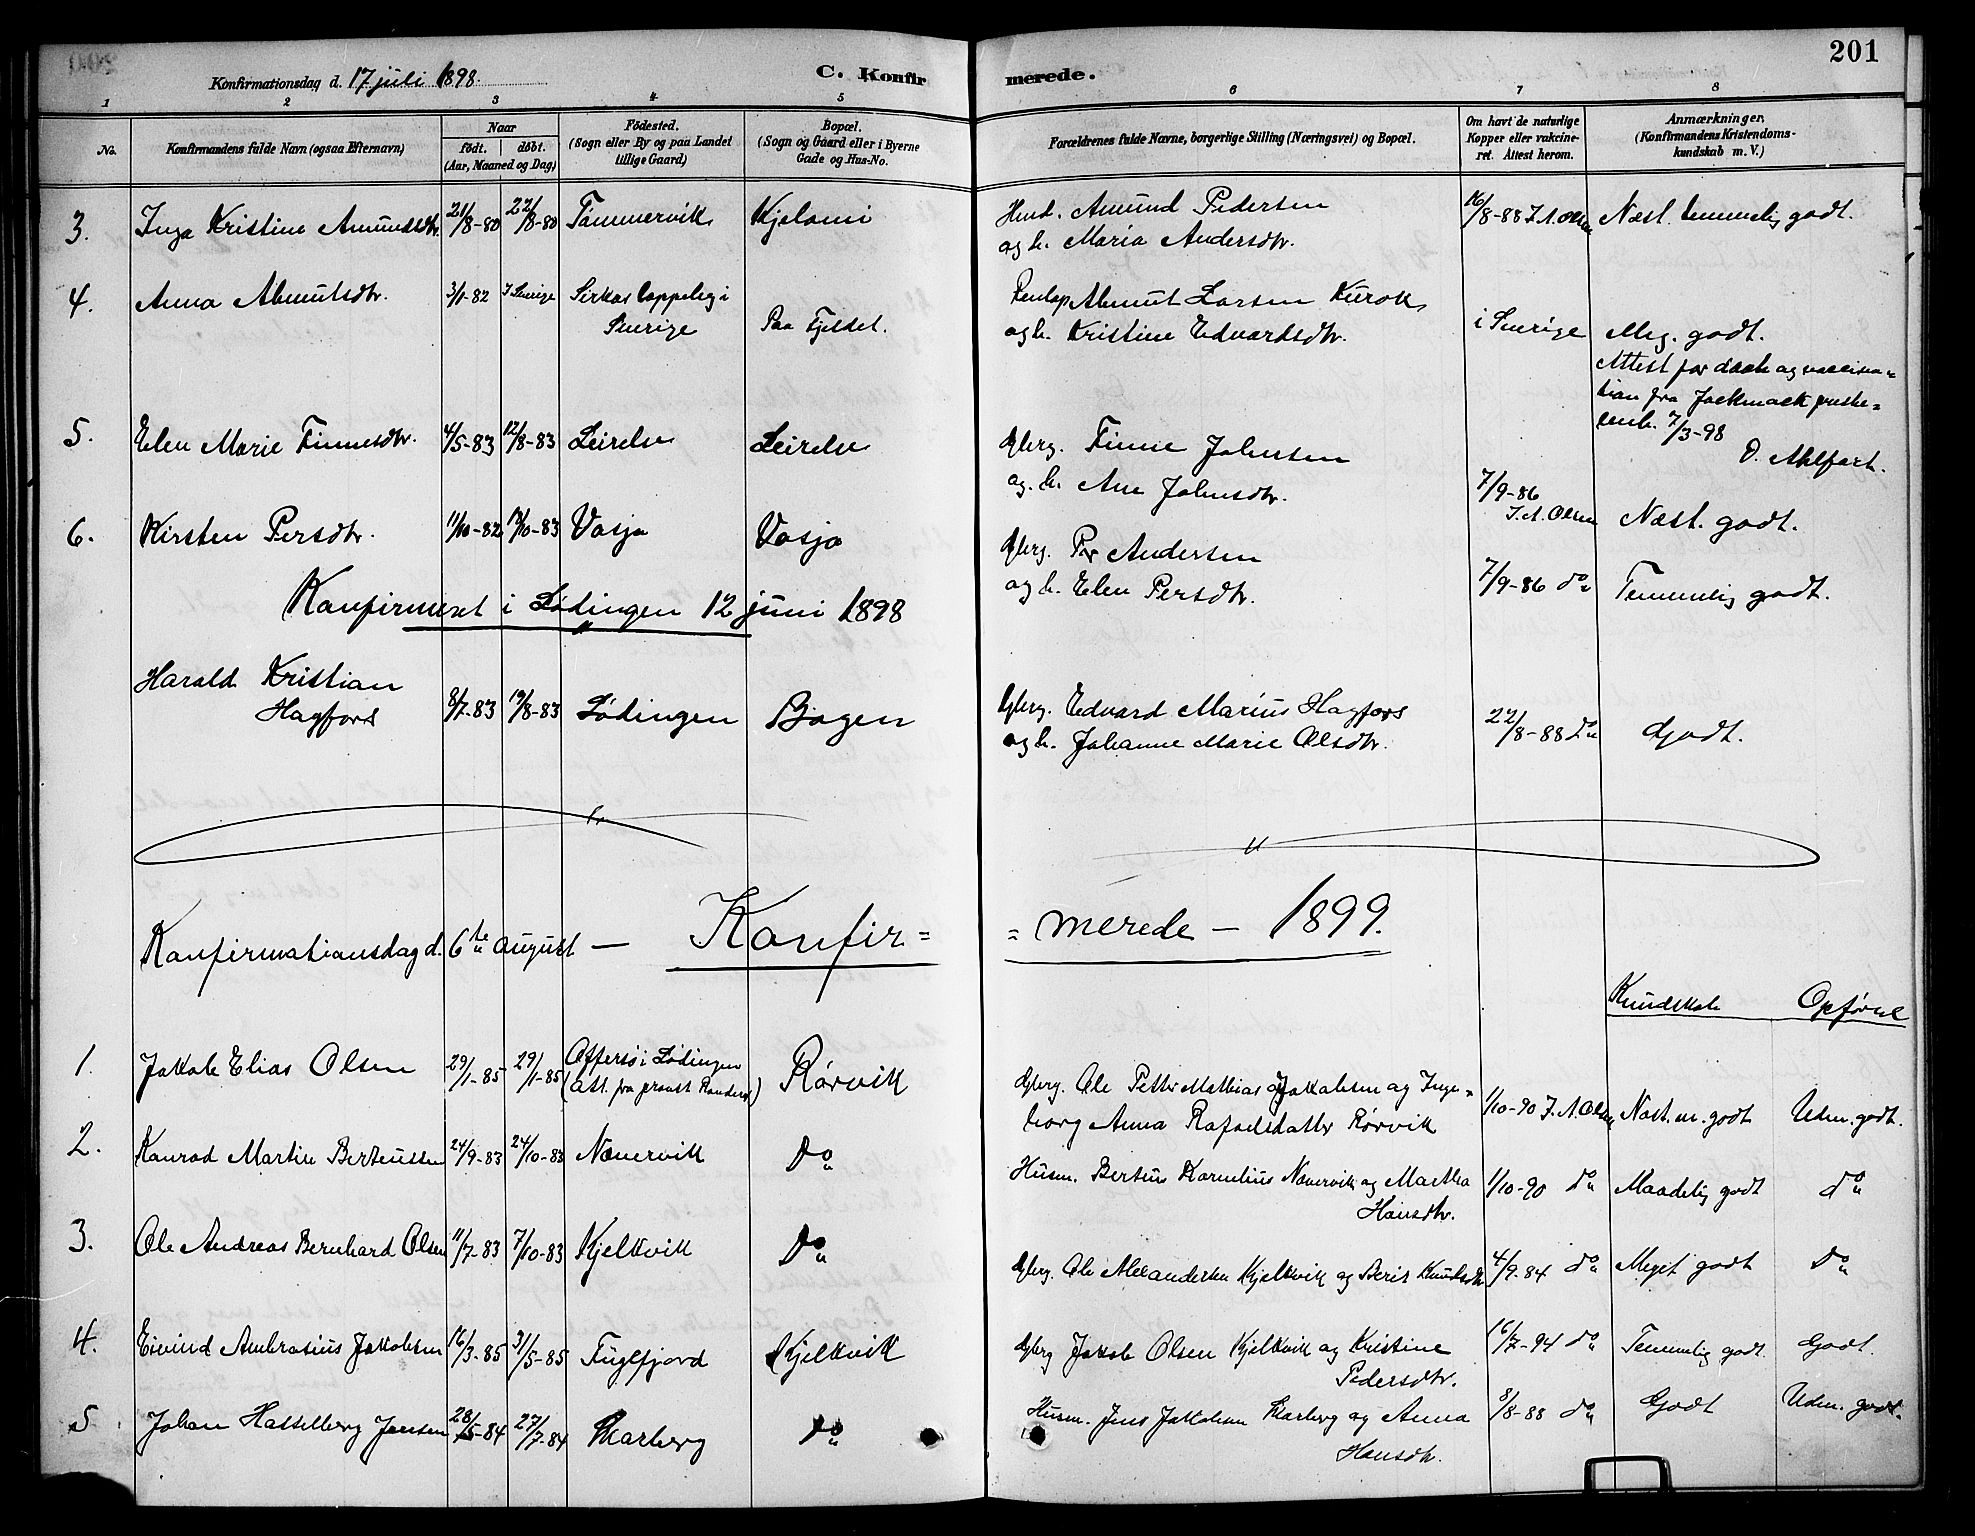 201
Konfirmationsdag d. 17 juli 1898.
C. Konfirmerede.
1 2 3 4 5 6 7 8
No.
Konfirmandens fulde Navn (ogsaa Efternavn)
Naar
født. døbt.
(Aar, Maaned og Dag)
Fødested.
(Sogn eller By og paa Landet
tillige Gaard)
Bopæl.
(Sogn og Gaard eller i Byerne
Gade og Hus-No.
Forældrenes fulde Navne, borgerlige Stilling (Næringsvei) og Bopæl.
Om havt de naturlige
Kopper eller vakcine-
ret. Attest herom.
Anmærkninger.
(Konfirmandens Kristendoms-
kundskab m. V.)
3. Inga Kristine Amundsdtr. 21/8-80 22/8-80 Tømmervik Kjelomi
Amund Pedersen
og h. Maria Andersdtr.
16/8-88 J. A. Olsen Næst. temmelig godt.
4. Anna Abmutsdtr. 3/1-82 I Sverige Sirkas lappeby i
Sverige Paa Fjeldet.
Abmut Larsen Kurok
og h. Kristine Edvardsdtr.
i Sverige Meg. godt.
Attest for daab og vaccina=
tion fra Jockmock preste=
7/3-98
5. Elen Marie Finnesdtr. 4/5-83 12/8-83 Leirelv Leirelv
Gbrg. Finne Johnsen
og h. Ane Johnsdtr.
7/9-86
J. A. Olsen Næst. godt.
6. Kirsten Persdtr. 11/10-82 Vasja Vasja
Gbrg. Per Andersen
og h. Elen Persdtr.
7/9-86 do Temmelig godt.
Konfirmeret i Lødingen 12 juni 1898
Harald Kristian
Hagfors 8/7-83 19/8-83 Lødingen Bogen
Gbrg. Edvard Marius Hagfors
og h. Johanne Marie Olsdtr.
22/8-88 do Godt.
Konfirmationsdag d. 6te august — Konfir=
=merede — 1899.
Kundskab Opførsel
1. Jakob Elias Olsen 29/1-85 29/1-85 Offersø i Lødingen
(Att. fra provst Randers) Rørvik
Gbrg. Ole Petter Mathias Jakobsen og Inge=
borg Anna Rafaelsdatter Rørvik
1/10-90 J. A. Olsen Næst. m. godt Udm. godt.
2. Konrad Martin Berteussen 24/9-83 24/10-83 Nævervik Do
Husm. Berteus Kornelius Nævervik og Martha
Hansdtr.
1/10-90 do Maadelig godt do
3. Ole Andreas Bernhard Olsen 11/7-83 7/10-83 Kjelkvik Do
Gbrg. Ole Alexandersen Kjelkvik og Berit Knudsdtr
4/9-84 do Meget godt Do
4. Eivind Ambrosius Jakobsen 16/3-85 31/5-85 Fuglfjord Kjelkvik
Gbrg Jakob Olsen Kjelkvik og Kristine
Pedersdtr.
16/7-94 do Temmelig godt. Godt.
5 Johan Hasselberg Jensen 28/5-84 27/7-84 Skarberg Do
Husm. Jens Jakobsen Skarberg og Anna
Hansdtr.
8/8-88 do Godt Udm. godt.